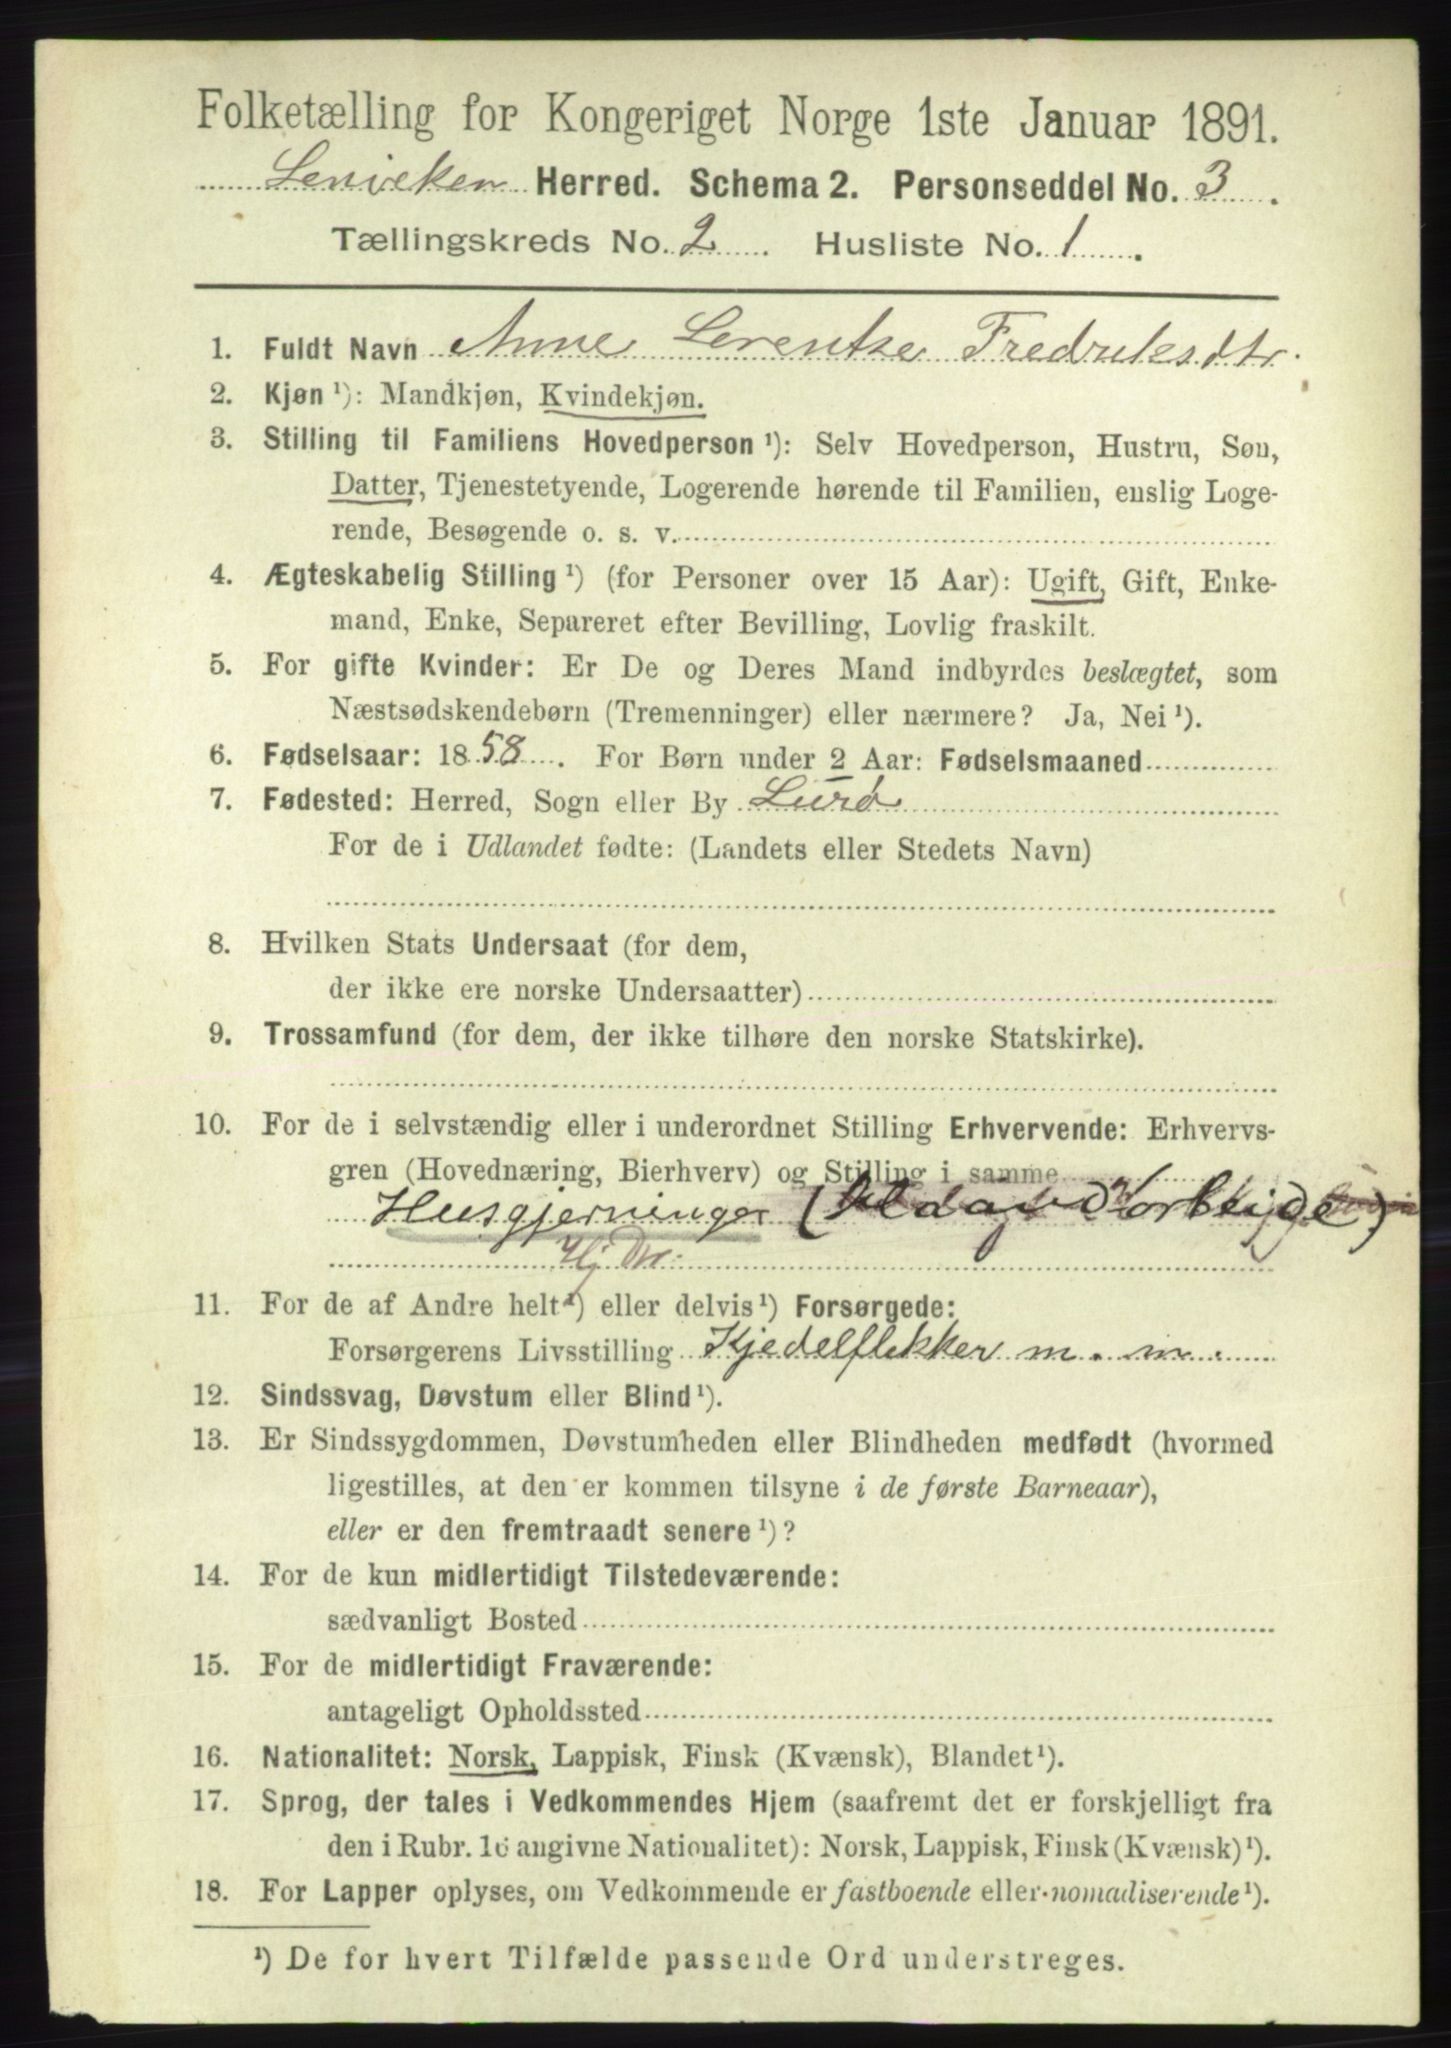 Folketælling for Kongeriget Norge 1ste Januar 1891.
Lenviken Herred. Schema 2. Personseddel No. 3.
Tællingskreds No. 2. Husliste No. 1.
1. Fuldt Navn Anne Lorentse Fredriksdtr.
2. Kjøn ¹): Mandkjøn, Kvindekjøn.
3. Stilling til Familiens Hovedperson ¹): Selv Hovedperson, Hustru, Søn,
Datter, Tjenestetyende, Logerende hørende til Familien, enslig Loge-
rende, Besøgende o. s. v.
4. Ægteskabelig Stilling ¹) (for Personer over 15 Aar): Ugift, Gift, Enke-
mand, Enke, Separeret efter Bevilling, Lovlig fraskilt.
5. For gifte Kvinder: Er De og Deres Mand indbyrdes beslægtet, som
Næstsødskendebørn (Tremenninger) eller nærmere? Ja, Nei ¹).
6. Fødselsaar: 1858. For Børn under 2 Aar: Fødselsmaaned
7. Fødested: Herred, Sogn eller By Lurø
For de i Udlandet fødte: (Landets eller Stedets Navn)
8. Hvilken Stats Undersaat (for dem,
der ikke ere norske Undersaatter)
9. Trossamfund (for dem, der ikke tilhøre den norske Statskirke).
10. For de i selvstændig eller i underordnet Stilling Erhvervende: Erhvervs-
gren (Hovednæring, Bierhverv) og Stilling i samme
Husgjerninger
Hj Dtr.
11. For de af Andre helt ¹) eller delvis ¹) Forsørgede:
Forsørgerens Livsstilling Kjedelflikker m. m.
12. Sindssvag, Døvstum eller Blind ¹).
13. Er Sindssygdommen, Døvstumheden eller Blindheden medfødt (hvormed
ligestilles, at den er kommen tilsyne i de første Barneaar),
eller er den fremtraadt senere ¹)?
14. For de kun midlertidigt Tilstedeværende:
sædvanligt Bosted
15. For de midlertidigt Fraværende:
antageligt Opholdssted
16. Nationalitet: Norsk, Lappisk, Finsk (Kvænsk), Blandet ¹).
17. Sprog, der tales i Vedkommendes Hjem (saafremt det er forskjelligt fra
den i Rubr. 16 angivne Nationalitet): Norsk, Lappisk, Finsk (Kvænsk) ¹).
18. For Lapper oplyses, om Vedkommende er fastboende eller nomadiserende ¹).
¹) De for hvert Tilfælde passende Ord understreges.